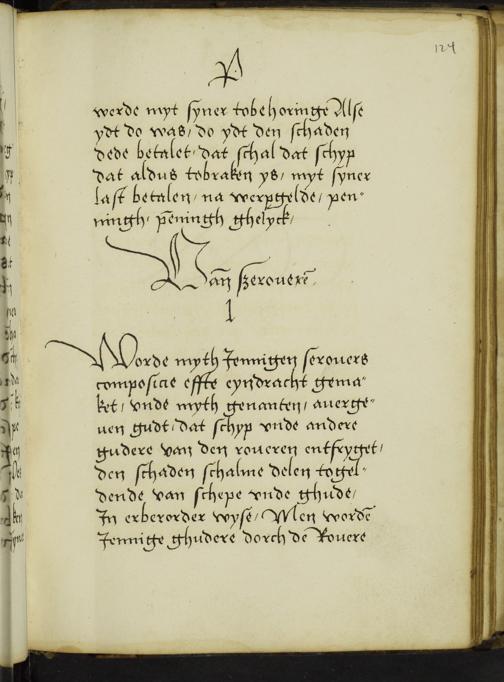 124
P
werde myt syner tobehoringe Alse
ydt do was, do ydt den schaden
dede betalet, dat schal dat schyp
dat aldus tobraken ys, myt syner
last betalen, na werpgelde, pen-
ningh, pēningh ghelyck,
Van szeroverē.
1
Worde myth Jennigen serovers
composicie effte eyndracht gema-
ket, vnde myth genanten, auerge-
uen gudt, dat schyp vnde andere
gudere van den roueren entfryget,
den schaden schalme delen togel-
dende van schepe vnde ghude,
In erberorder wyse, Men wordē
Jennige ghudere dorch dē Rouere